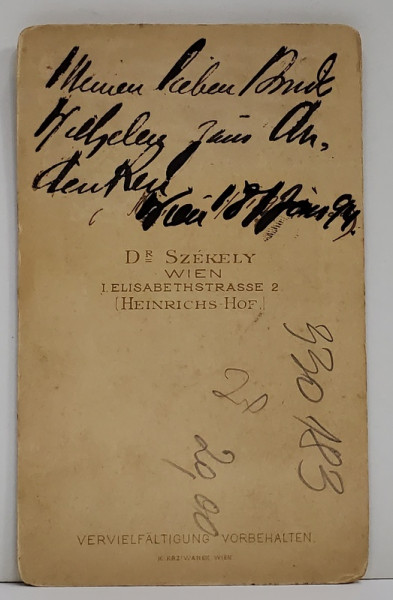 Meinen lieben Bruder
Wilhelm zum An-
denken
Wien
DR SZÉKELY
WIEN
I. ELISABETHSTRASSE 2
(HEINRICHS-HOF.)
330 183
20,00
VERVIELFÄLTIGUNG VORBEHALTEN.